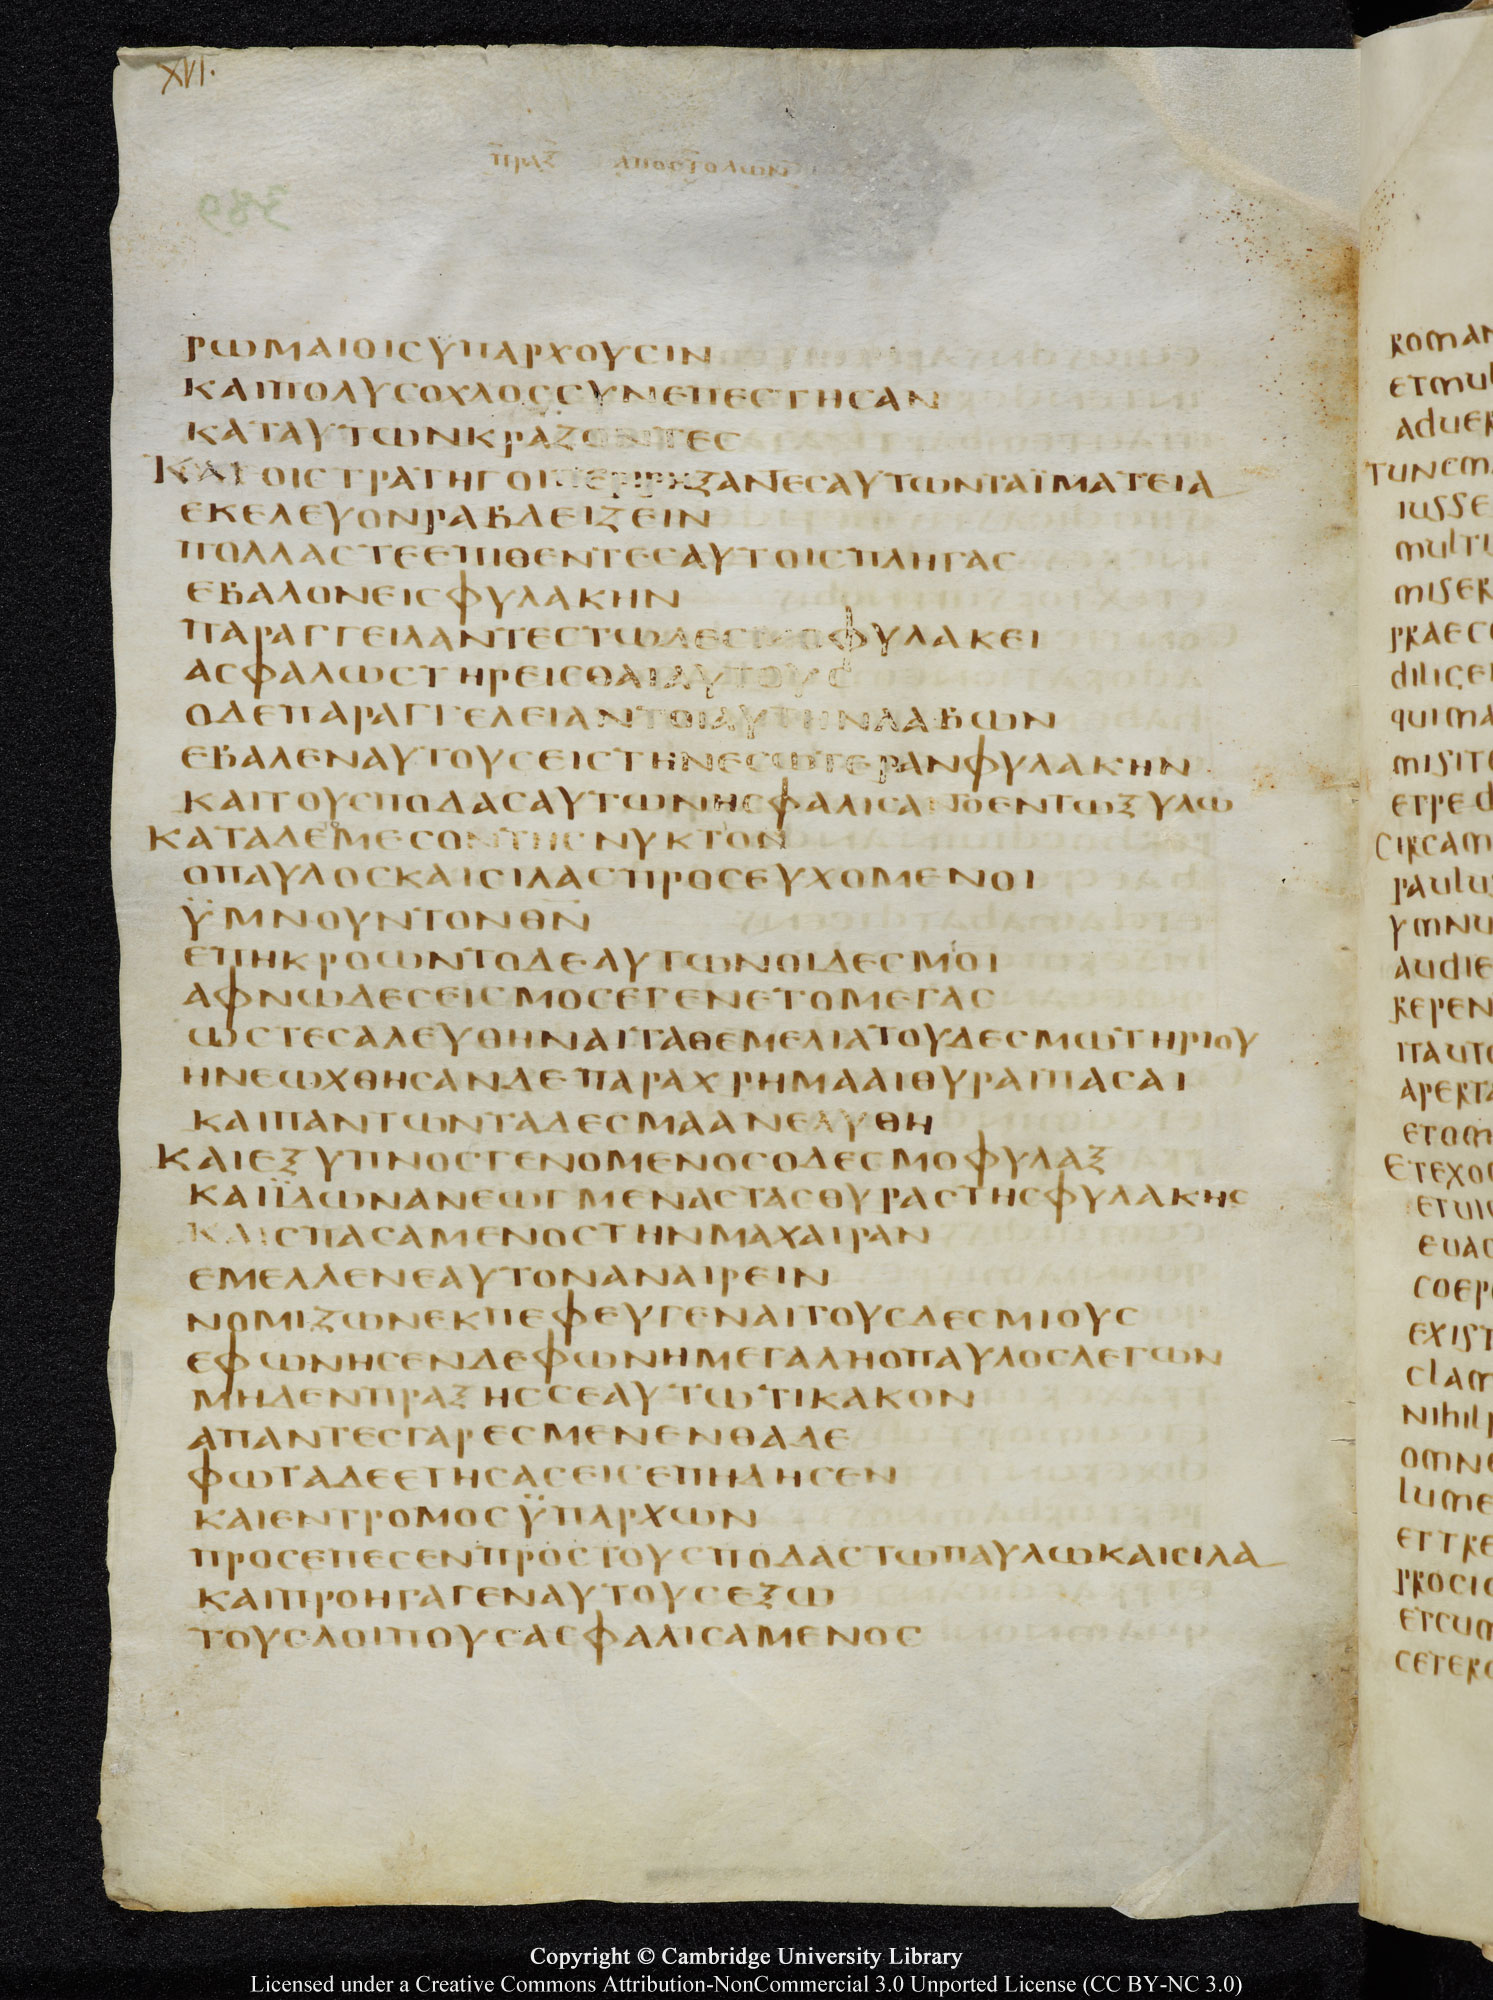 XVI.
πραξ αποστολων
389
ΡΩΜΑΙΟΙΣΥΠΑΡΧΟΥΣΙΝ
ΚΑΙΠΟΛΥΣΟΧΛΟΣΣΥΝΕΠΕΣΤΗΣΑΝ
ΚΑΤΑΥΤΩΝΚΡΑΖΟΝΤΕΣ
ΚΑΙΟΙΣΤΡΑΤΗΓΟΙΠΕΡΙΡΗΞΑΝΤΕΣΑΥΤΩΝΤΑΪΜΑΤΕΙΑ
ΕΚΕΛΕΥΟΝΡΑΒΔΕΙΖΕΙΝ
ΠΟΛΛΑΣΤΕΕΠΙΘΕΝΤΕΣΑΥΤΟΙΣΠΛΗΓΑΣ
ΕΒΑΛΟΝΕΙΣΦΥΛΑΚΗΝ
ΠΑΡΑΓΓΕΙΛΑΝΤΕΣΤΩΔΕΣΜΟΦΥΛΑΚΕΙ
ΑΣΦΑΛΩΣΤΗΡΕΙΣΘΑΙΑΥΤΟΥΣ
ΟΔΕΠΑΡΑΓΓΕΛΕΙΑΝΤΟΙΑΥΤΗΝΛΑΒΩΝ
ΕΒΑΛΕΝΑΥΤΟΥΣΕΙΣΤΗΝΕΣΩΤΕΡΑΝΦΥΛΑΚΗΝ
ΚΑΙΤΟΥΣΠΟΔΑΣΑΥΤΩΝΗΣΦΑΛΙΣΑΝΤΟΕΝΤΩΞΥΛΩ
ΚΑΤΑΔΕΜΕΣΟΝΤΗΣΝΥΚΤΟΝ
ΟΠΑΥΛΟΣΚΑΙΣΙΛΑΣΠΡΟΣΕΥΧΟΜΕΝΟΙ
ΫΜΝΟΥΝΤΟΝΘΝ
ΕΠΗΚΡΟΩΝΤΟΔΕΑΥΤΩΝΟΙΔΕΣΜΟΙ
ΑΦΝΩΔΕΣΕΙΣΜΟΣΕΓΕΝΕΤΟΜΕΓΑΣ
ΩΣΤΕΣΑΛΕΥΘΗΝΑΙΤΑΘΕΜΕΛΙΑΤΟΥΔΕΣΜΩΤΗΡΙΟΥ
ΗΝΕΩΧΘΗΣΑΝΔΕΠΑΡΑΧΡΗΜΑΑΙΘΥΡΑΙΠΑΣΑΙ
ΚΑΙΠΑΝΤΩΝΤΑΔΕΣΜΑΑΝΕΛΥΘΗ
ΚΑΙΕΞΥΠΝΟΣΓΕΝΟΜΕΝΟΣΟΔΕΣΜΟΦΥΛΑΞ
ΚΑΙΪΔΩΝΑΝΕΩΓΜΕΝΑΣΤΑΣΘΥΡΑΣΤΗΣΦΥΛΑΚΗΣ
ΚΑΙΣΠΑΣΑΜΕΝΟΣΤΗΝΜΑΧΑΙΡΑΝ
ΕΜΕΛΛΕΝΕΑΥΤΟΝΑΝΑΙΡΕΙΝ
ΝΟΜΙΖΩΝΕΚΠΕΦΕΥΓΕΝΑΙΤΟΥΣΔΕΣΜΙΟΥΣ
ΕΦΩΝΗΣΕΝΔΕΦΩΝΗΜΕΓΑΛΗΟΠΑΥΛΟΣΛΕΓΩΝ
ΜΗΔΕΝΠΡΑΞΗΣΣΕΑΥΤΩΤΙΚΑΚΟΝ
ΑΠΑΝΤΕΣΓΑΡΕΣΜΕΝΕΝΘΑΔΕ
ΦΩΤΑΔΕΕΤΗΣΑΣΕΙΣΕΠΗΔΗΣΕΝ
ΚΑΙΕΝΤΡΟΜΟΣΫΠΑΡΧΩΝ
ΠΡΟΣΕΠΕΣΕΝΠΡΟΣΤΟΥΣΠΟΔΑΣΤΩΠΑΥΛΩΚΑΙΣΙΛΑ
ΚΑΙΠΡΟΗΓΑΓΕΝΑΥΤΟΥΣΕΞΩ
ΤΟΥΣΛΟΙΠΟΥΣΑΣΦΑΛΙΣΑΜΕΝΟΣ
Copyright © Cambridge University Library
Licensed under a Creative Commons Attribution-NonCommercial 3.0 Unported License (CC BY-NC 3.0)